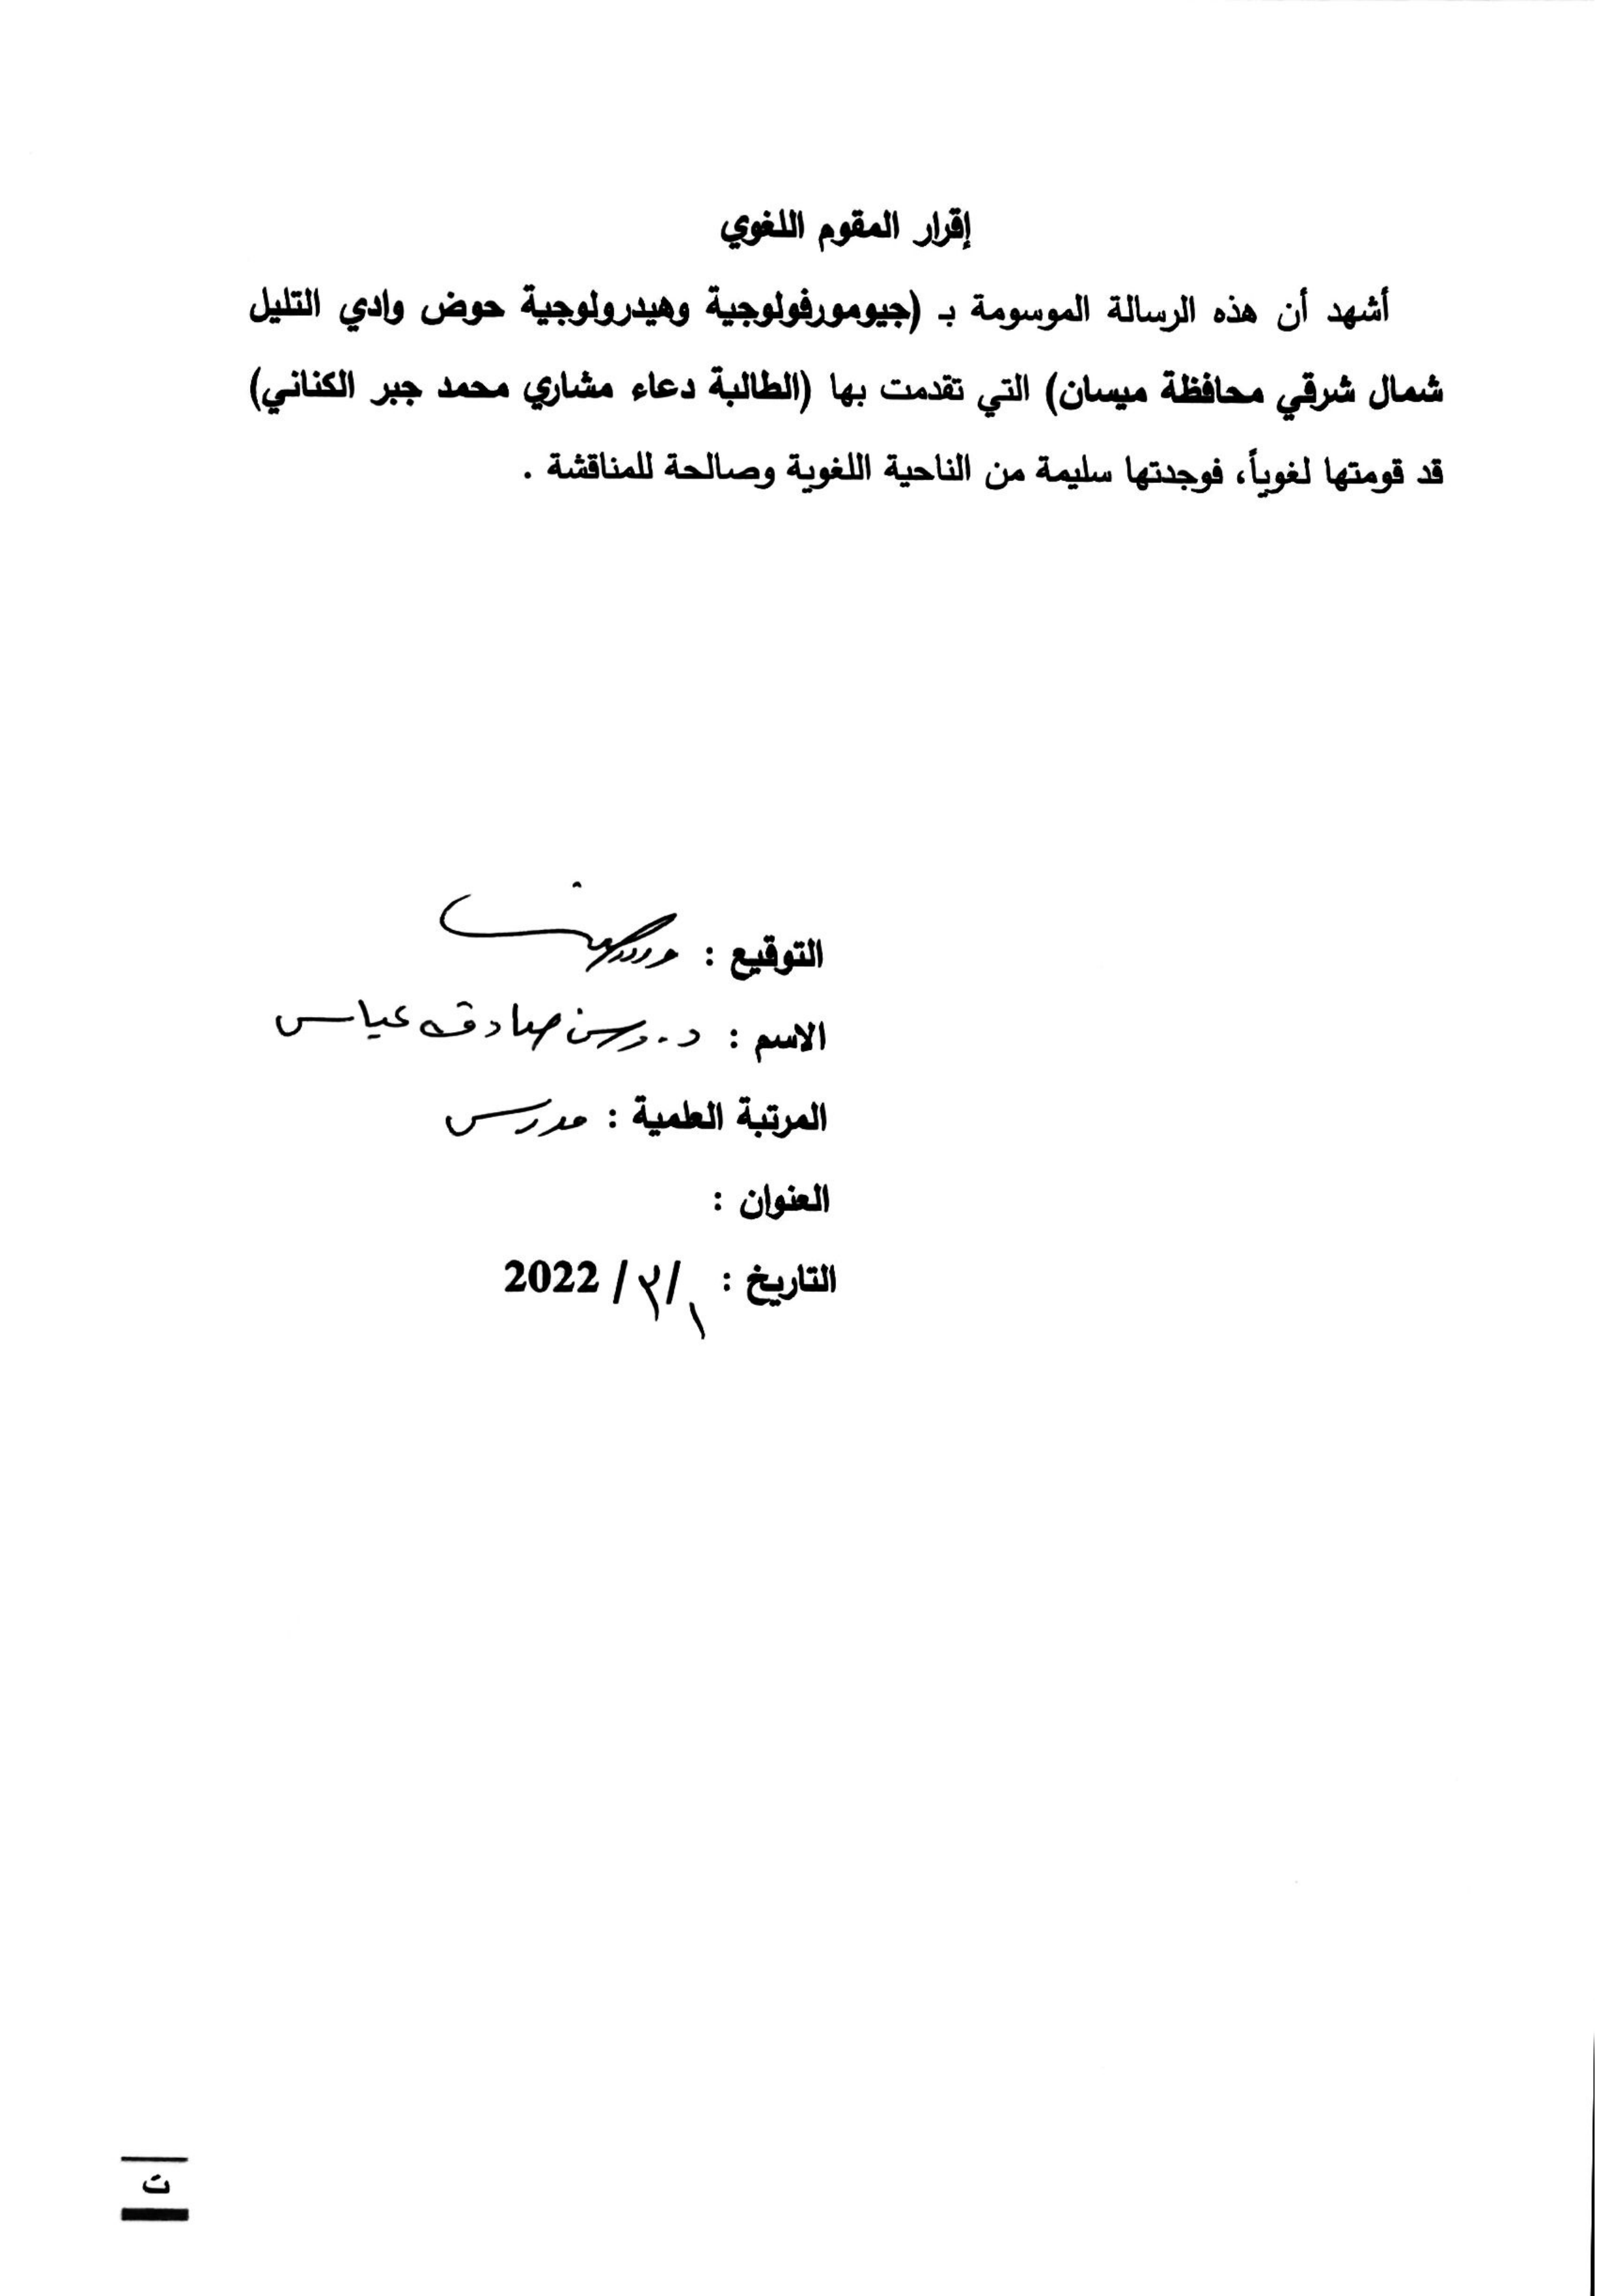 إقرار المقوم اللغوي
أشهد أن هذه الرسالة الموسومة بـ (جيومورفولوجية وهيدرولوجية حوض وادي التليل
شمال شرقي محافظة ميسان) التي تقدمت بها (الطالبة دعاء مشاري محمد جبر الكناني)
قد قومتها لغوياً، فوجدتها سليمة من الناحية اللغوية وصالحة للمناقشة .
التوقيع :
الاسم : د. وسن صادق عباس
المرتبة العلمية : مدرس
العنوان :
التاريخ : ١ / ٣ / 2022
ت